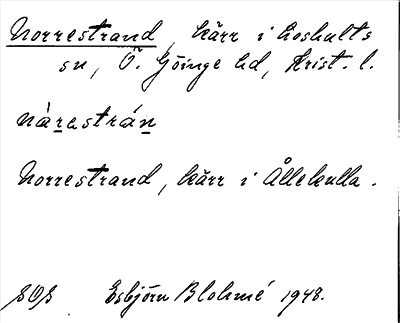 Norrestrand, kärr i Loshults
sn, Ö. Göinge hd, Krist. l.
nàrestrán
Norrestrand, kärr i Ållekulla.
SOS Esbjörn Blohmé 1948.